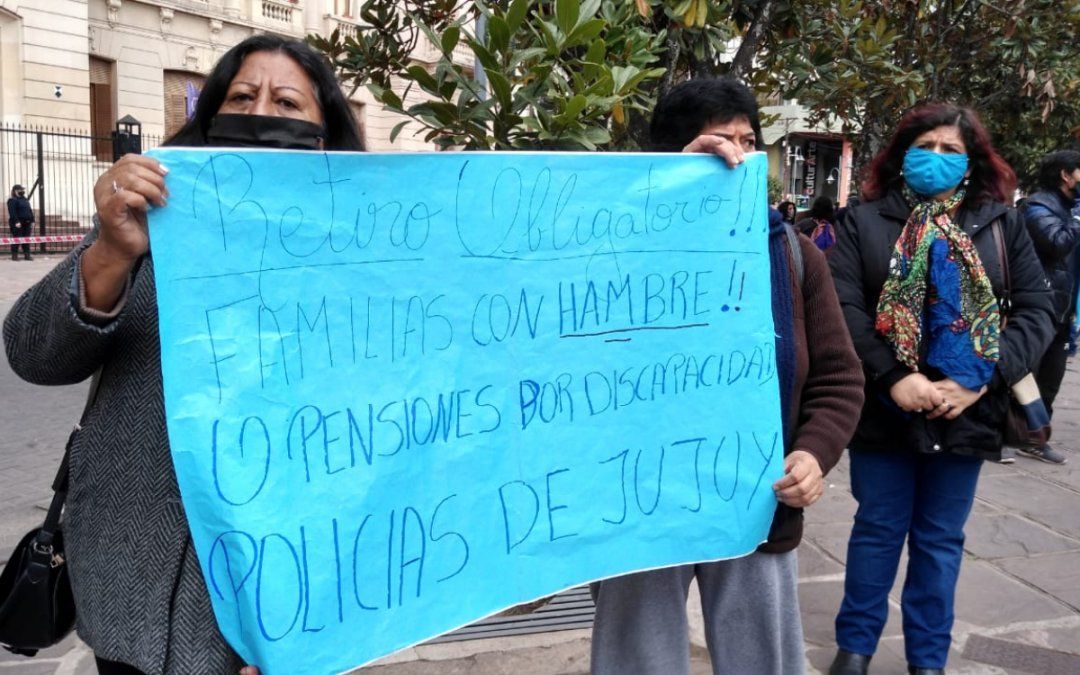 Retiro Obligatorio!!!
FAMILIAS CON HAMBRE!!
U PENSIONES POR DISCAPACIDAD
POLICIAS DE JUJUY
culturArte